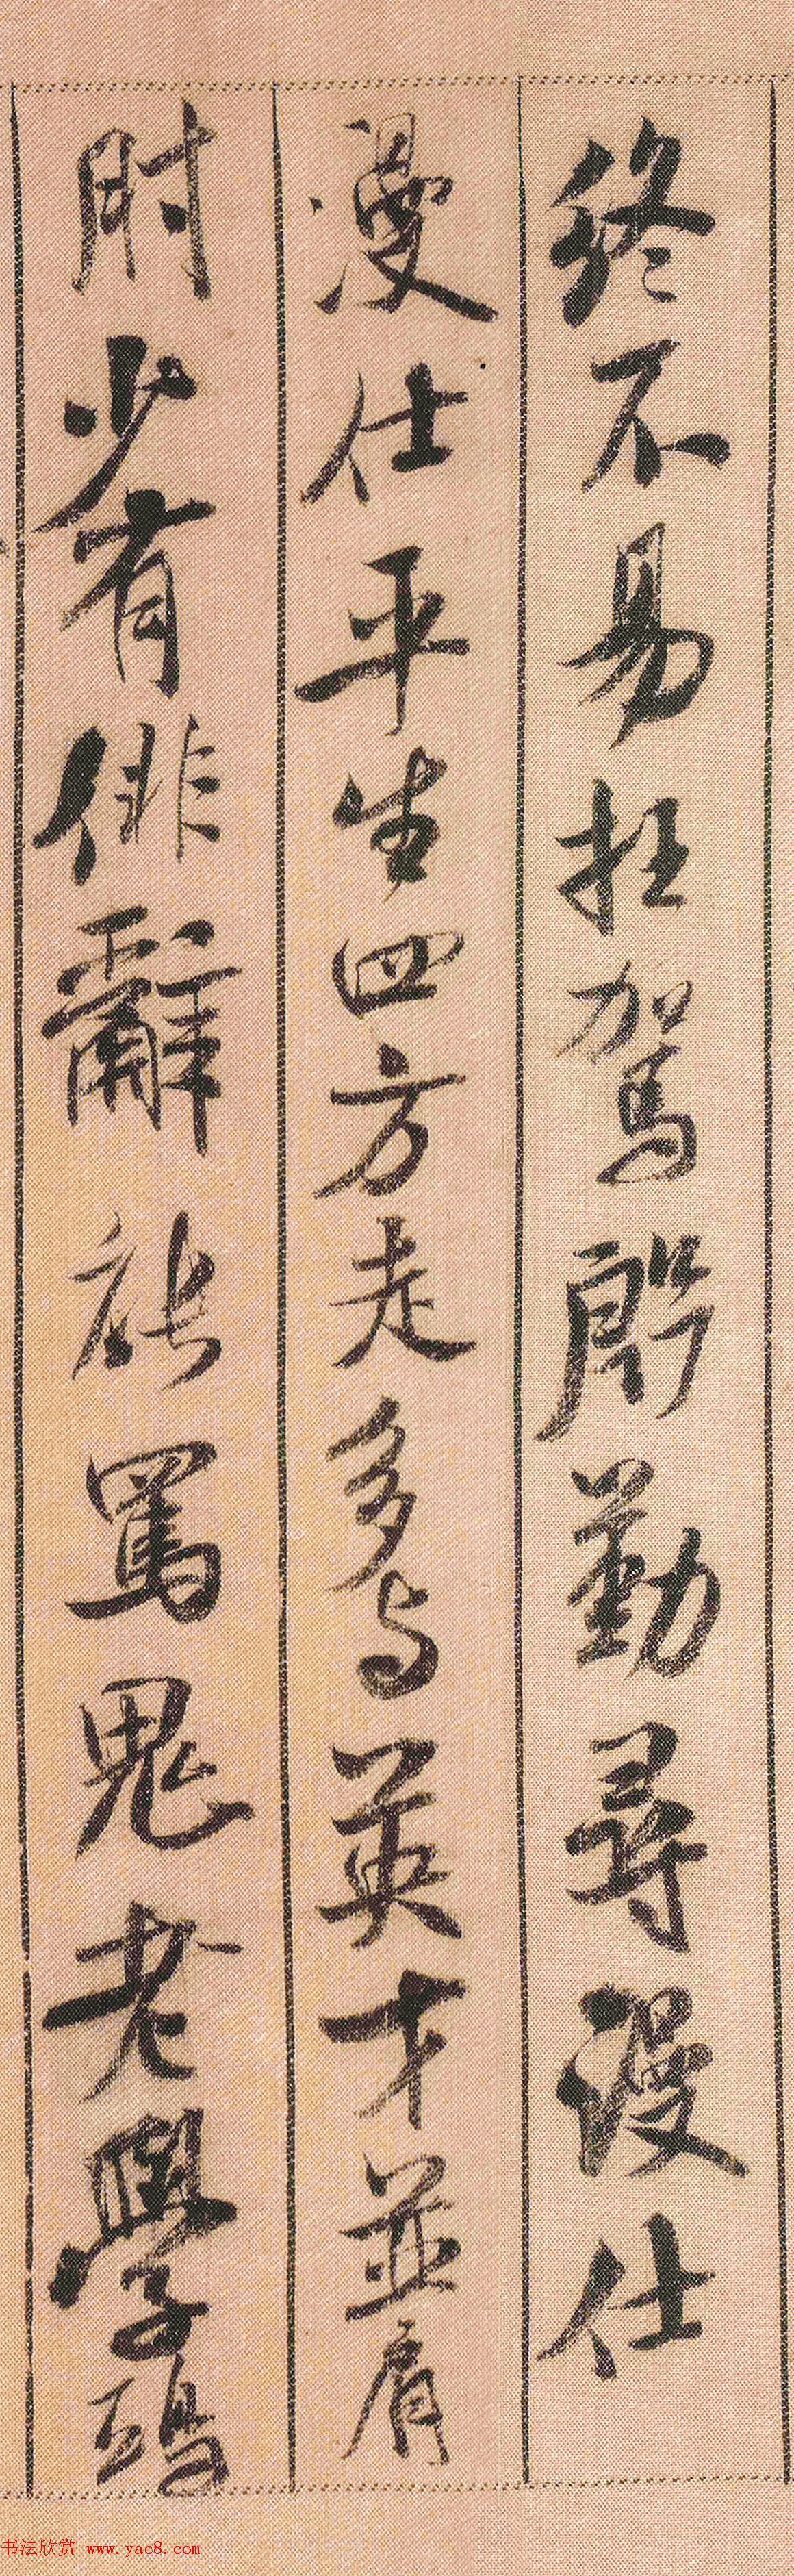 終不易枉駕殷勤尋漫仕
漫仕平生四方走多与英才並肩
肘少有俳辭能罵鬼老學鴟
书法欣赏 www.yac8.com